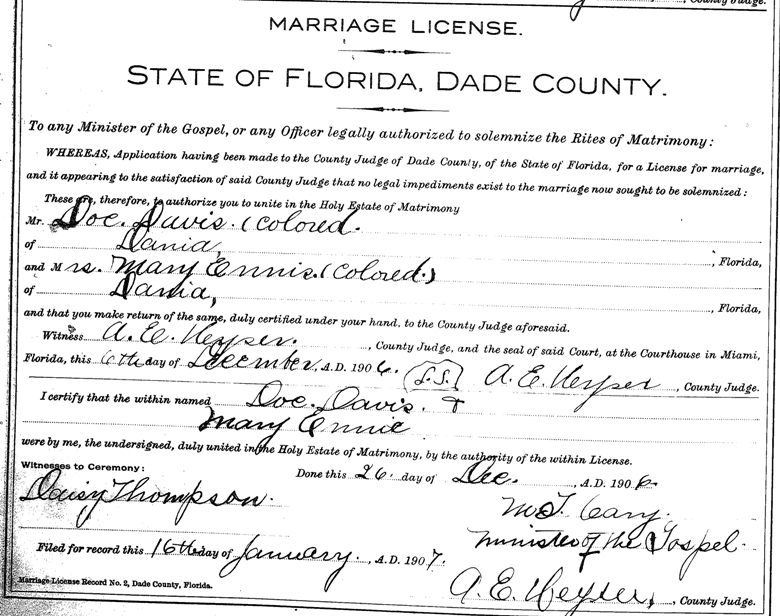 , County Judge.
MARRIAGE LICENSE.
STATE OF FLORIDA, DADE COUNTY.
To any Minister of the Gospel, or any Officer legally authorized to solemnize the Rites of Matrimony:
WHEREAS, Application having been made to the County Judge of Dade County, of the State of Florida, for a License for marriage,
and it appearing to the satisfaction of said County Judge that no legal impediments exist to the marriage now sought to be solemnized:
These are, therefore, to authorize you to unite in the Holy Estate of Matrimony
Mr. Doc. Davis. (colored.
of Dania, , Florida,
and Mrs. Mary Ennis. (colored.)
of Dania, , Florida,
and that you make return of the same, duly certified under your hand, to the County Judge aforesaid.
Witness A. E. Heyser. , County Judge, and the seal of said Court, at the Courthouse in Miami,
Florida, this 6th day of December, A.D. 1906. (L.S.) A. E. Heyser , County Judge.
I certify that the within named Doc. Davis. &
Mary Ennis
were by me, the undersigned, duly united in the Holy Estate of Matrimony, by the authority of the within License.
Witnesses to Ceremony: Done this 26. day of Dec. , A.D. 1906.
Daisy Thompson. Cary.
Minister of the Gospel.
Filed for record this 16th day of January. , A.D. 1907.
Marriage License Record No. 2, Dade County, Florida. A. E. Heyser, , County Judge.